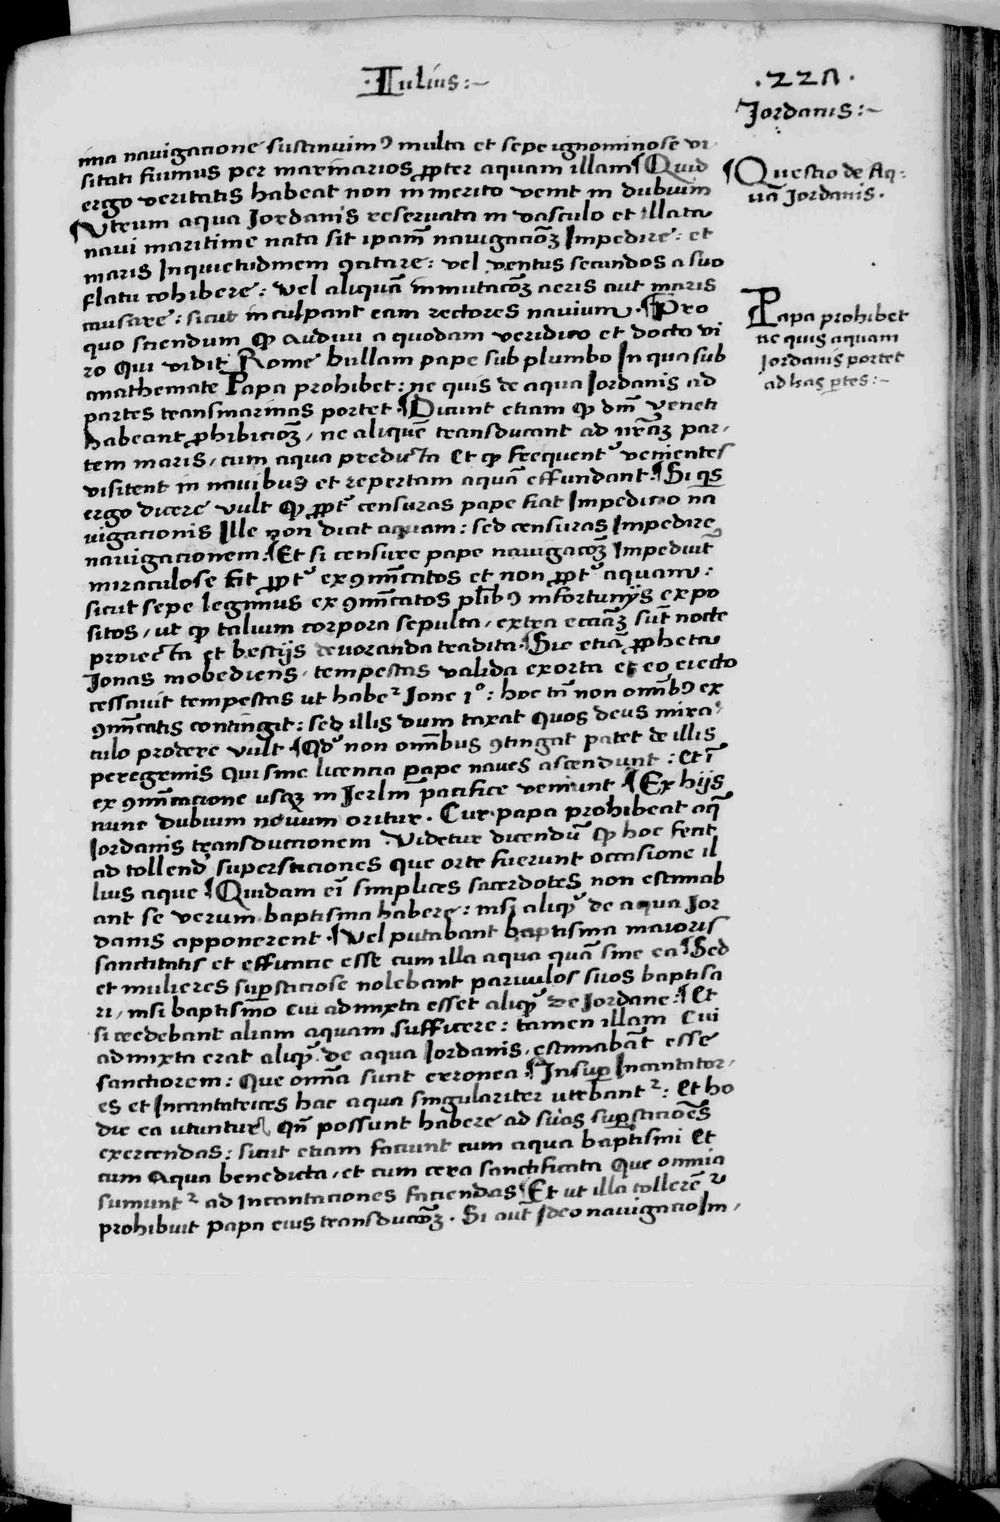 ·Iulius:~
·221·
Jordanis:~
ima navigatione sustinuimꝰ multa et sepe ignominose vi
sitati fuimus per marinarios ꝓpter aquam illam ¶Quid
ergo veritatis habeat non inmerito venit in dubium
¶Vtrum aqua Jordanis reservata in vasculo et illata
navi maritime nata sit ipam̄ navigacioꝫ Impedire: et
maris Inquietudinem ꝯcitare: vel ventus secundos a suo
flatu cohibere: vel aliquā inmutacoꝫ aeris aut maris
causare: sicut inculpant eam rectores navium·¶Pro
quo sciendum ꝙ audivi a quodam veridico et docto vi
ro qui vidit Rome bullam pape sub plumbo In qua sub
anathemate Papa prohibet: ne quis de aqua Jordanis ad
partes transmarinas portet·¶Dicunt etiam ꝙ dm̄ Veneti
habeant ꝓhibicioꝫ, ne aliquē transducant ad nr̄aꝫ par,
tem maris, cum aqua predicta et ꝙ frequent᷒ venientes
visitent in navibus et repertam aquā effundant·¶Si qs
ergo dicere vult ꝙ ꝓpt᷒ censuras pape fiat Impeditio na
vigationis Ille non dicit aquam: sed censuras Impedire
navigationem·¶Et si censure pape navigacoꝫ Impediūt
miraculose fit ꝓpt᷒ exꝯmn̄catos et non ꝓpt᷒ aquam:
sicut sepe legimus exꝯmn̄catos pl̄ibꝰ infortunijs expo
sitos, ut ꝙ talium corpora sepulta, extra ecciāꝫ sūt nocte
proiecta et bestijs devoranda tradita·¶Sic etiā ꝓpheta
Jonas inobediens, tempestas valida exorta et eo eiecto
cessavit tempestas ut habet᷒ Jone 1º: hoc tn̄ non omībꝰ ex
ꝯmn̄catis contingit: sed illis dum taxat quos deus mira,
culo prodere vult·¶Qd᷒ non omībus ꝯtingat patet de illis
peregrinis qui sine licentia pape naves ascendunt: et ī
exꝯmn̄catione usqꝫ in Jerlm̄ pacifice veniunt·¶Ex hijs
nunc dubium novum oritur· Cur papa prohibeat aq̄
Jordanis transductionem· Videtur dicendū ꝙ hoc fecit
ad tollend᷒ superstitiones que orte fuerunt occasione il
lius aque·¶Quidam ei᷒ simplices sacerdotes non estimab
ant se verum baptisma habere: nisi aliqd᷒ de aqua Jor
danis apponerent·¶Vel putabant baptisma maioris
sanctitatis et efficacie esse cum illa aqua quā sine ea·¶Sed
et mulieres suꝑsticiose nolebant parvulos suos baptisa
ri, nisi baptismo cui admixta esset aliqd᷒ de Jordane·¶Et
si credebant aliam aquam sufficere: tamen illam cui
admixta erat aliqd᷒ de aqua Jordanis, estimabāt esse
sanctiorem: que omīa sunt erronea·¶Insuꝑ Incantator,
es et Incantatrices hac aqua singulariter utebant᷒: et ho
die ea utuntur, qn̄ possunt habere ad suas suꝑsticiōes
exercendas: sicut etiam faciunt cum aqua baptismi et
cum aqua benedicta, et cum cera sanctificata que omnia
sumunt᷒ ad Incantaciones faciendas·¶Et ut illa tollerēt᷒
prohibuit papa eius transducōꝫ· Si aut̄ Ideo navigatio Im,
¶Questio de Aq:
uā Jordanis·
Papa prohibet
ne quis aquam
Jordanis portet
ad has ꝑtes:~